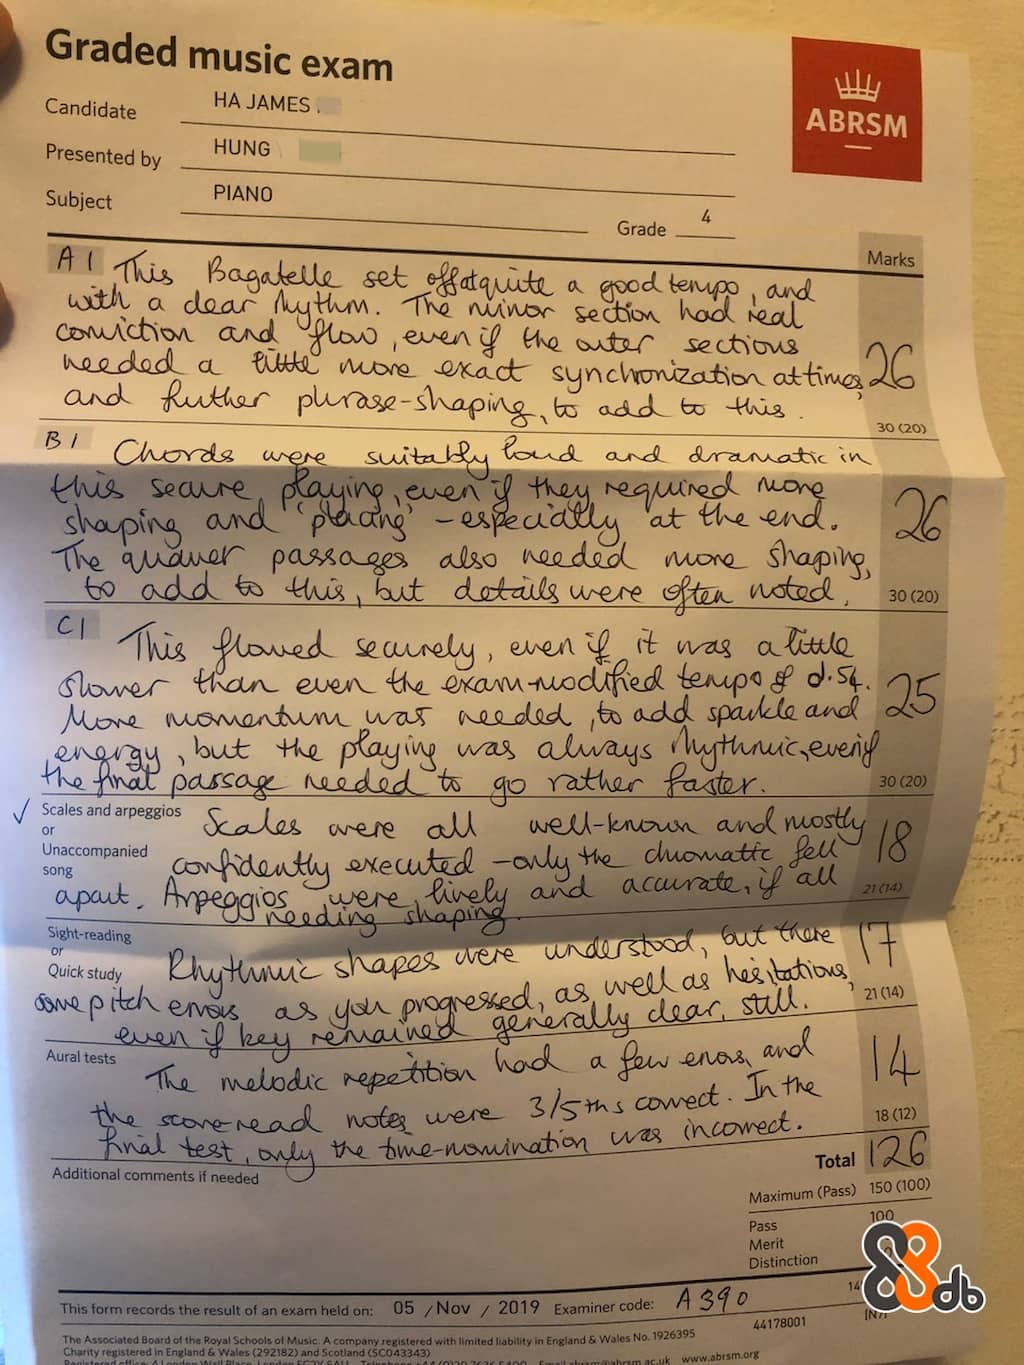 Graded music exam
ABRSM
Candidate HA JAMES
Presented by HUNG
Subject PIANO
Grade 4
Marks
A1 This Bagatelle set off at quite a good tempo, and
with a clear rhythm. The minor section had real
conviction and flow, even if the outer sections
needed a little more exact synchronization at times, 26
and further phrase-shaping, to add to this.
30 (20)
B1 Chords were suitably loud and dramatic in
this secure playing, even if they required more
shaping and 'placing' - especially at the end. 26
The quaver passages also needed more shaping,
to add to this, but details were often noted. 30 (20)
C1 This flowed securely, even if it was a little
slower than even the exam-modified tempo of d.54. 25
More momentum was needed, to add sparkle and
energy, but the playing was always rhythmic, even if
the final passage needed to go rather faster. 30 (20)
✓ Scales and arpeggios
or
Unaccompanied
song
Scales were all well-known and mostly
confidently executed - only the chromatic fell 18
apart. Arpeggios were lively and accurate, if all 21 (14)
needing shaping.
Sight-reading
or
Quick study
Rhythmic shapes were understood, but there 17
some pitch errors as you progressed, as well as hesitations, 21 (14)
even if key remained generally clear, still.
Aural tests
The melodic repetition had a few errors, and 14
the score-read notes were 3/5ths correct. In the 18 (12)
final test, only the time-nomination was incorrect.
Total 126
Additional comments if needed
Maximum (Pass) 150 (100)
Pass 100
Merit
Distinction
88db
This form records the result of an exam held on: 05 / Nov / 2019 Examiner code: A390
44178001
The Associated Board of the Royal Schools of Music. A company registered with limited liability in England & Wales No. 1926395
Charity registered in England & Wales (292182) and Scotland (SC043343)
www.abrsm.org